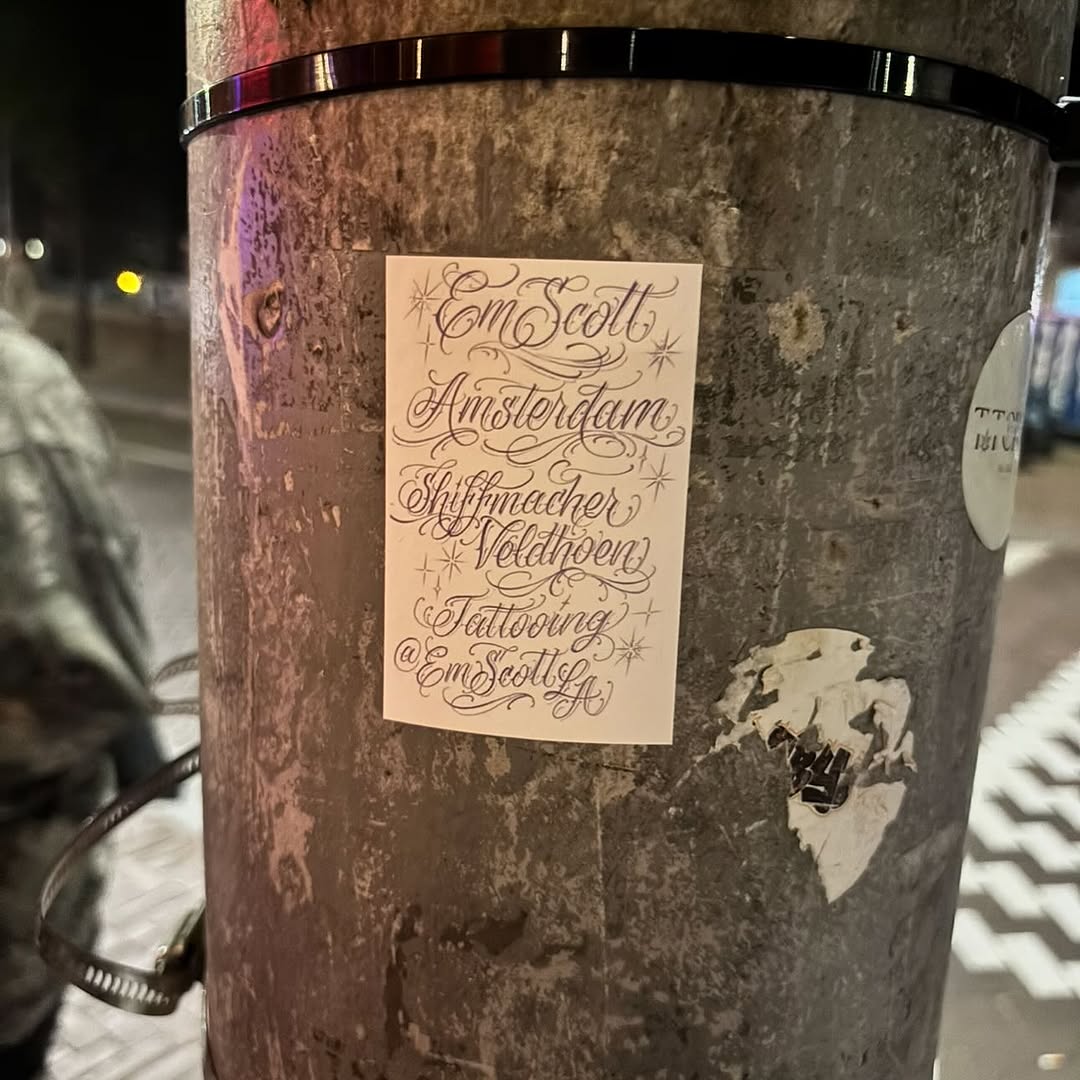 Em Scott
Amsterdam
Shiffmacher
Veldhoen
Tattooing
@EmScottLA